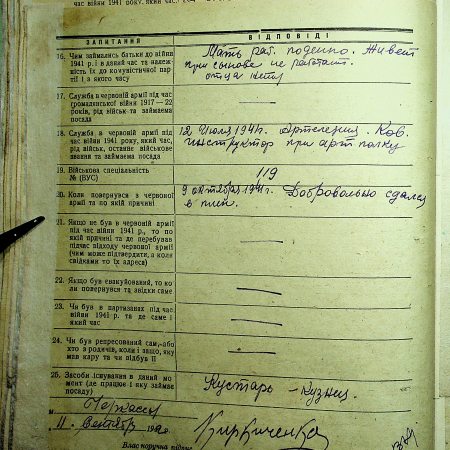 час війни 1941 року, який час, рід
ЗАПИТАННЯ
ВІДПОВІДІ
16. Чим займались батьки до війни
1941 р. і в даний час та належ-
ність їх до комуністичної пар-
тії і з якого часу
Мать раб. поденно. Живет
при сынове не работает.
отца нету
17. Служба в червоній армії під час
громадянської війни 1917—22
років, рід військ та займаєма
посада
18. Служба в червоній армії під
час війни 1941 року, який час,
рід військ, останнє військове
звання та займаєма посада
12 Июля 1941г. Артелерия. Ков.
инструктор при арт полку
19. Військова спеціальність
№ (ВУС)
119
20. Коли повернувся з червоної
армії та по якій причині
9 октября 1941г. Добровольно сдался
в плен.
21. Якщо не був в червоній армії
під час війни 1941 р., то по
якій причині та де перебував
підчас відходу червоної армії
(чим може підтвердити, а коли
свідками то їх адреси)
22. Якщо був евакуйований, то ко-
ли повернувся та звідки саме
23. Чи був в партизанах під час
війни 1941 р. та де саме і
який час
24. Чи був репресований сам, або
хто з родичів, коли і защо, яку
мав кару та чи відбув її
25. Засоби існування в даний мо-
мент (де працює і яку займає
посаду)
Кустарь - Кузнец.
Черкассы
"11" Сентябр 194
Кириченко
Влас норучна підпис